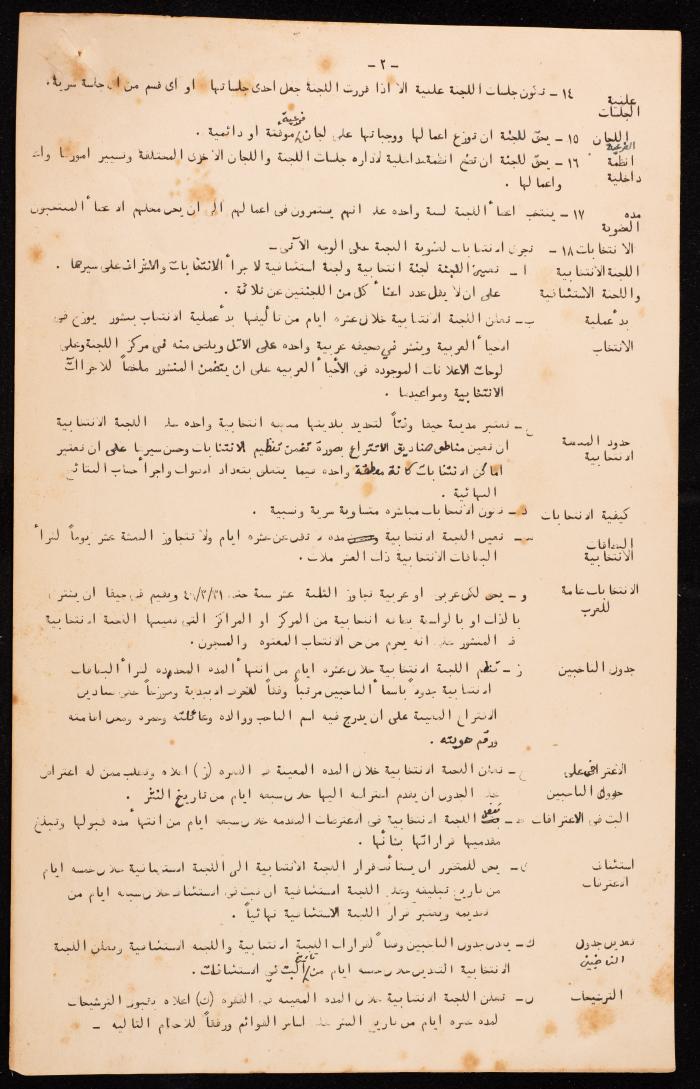 - ٢ -
علنية الجلسات ١٤ - تكون جلسات اللجنة علنية الا اذا قررت اللجنة جعل احدى جلساتها او اى قسم من اى جلسة سرية .
اللجان الفرعية ١٥ - يحق للجنة ان توزع اعمالها وواجباتها على لجان فرعية موقتة او دائمية .
انظمة داخلية ١٦ - يحق للجنة ان تضع انظمة داخلية لاداره جلسات اللجنة واللجان الاخرى المختلفة وتسيير امورها
واعمالها .
مده العضوية ١٧ - ينتخب اعضاء اللجنة لسنة واحده على انهم يستمرون فى اعمالهم الى ان يحل محلهم الاعضاء المنتخبون
الانتخابات ١٨ - تجرى الانتخابات لعضوية اللجنة على الوجه الآتى -
اللجنة الانتخابية ا - تعين اللجنة لجنة انتخابية ولجنة استئنافية لاجراء الانتخابات والاشراف على سيرها .
واللجنة الاستئنافية على ان لا يقل عدد اعضاء كل من اللجنتين عن ثلاثة .
بدء عملية ب - تعلن اللجنة الانتخابية خلال عشره ايام من تأليفها بدء عملية الانتخاب بمنشور يوزع فى
الانتخاب الاحياء العربية وينشر فى صحيفه عربية واحده على الاقل ويلصق منه فى مركز اللجنة وعلى
لوحات الاعلانات الموجوده فى الأحياء العربيه على ان يتضمن المنشور ملخصاً للاجراءات
الانتخابية ومواعيدها .
حدود المدينة ج - تعتبر مدينة حيفا وفقاً لتحديد بلديتها مدينه انتخابية واحده على اللجنة الانتخابية
الانتخابية ان تعين مناطق صناديق الاقتراع بصورة تضمن تنظيم الانتخابات وحسن سيرها على ان تعتبر
اماكن الانتخابات كافة منطقة واحده فيما يتعلق بتعداد الاصوات واجراء حساب النتائج
النهائية .
كيفية الانتخابات د - تكون الانتخابات مباشره متساوية سرية ونسبية .
البطاقات هـ - تعين اللجنة الانتخابية مده لا تقل عن عشره ايام ولا تتجاوز الخمسة عشر يوماً لشراء
الانتخابية البطاقات الانتخابية ذات العشر ملات .
الانتخابات عامة و - يحق لكل عربى او عربية تجاوز الثمانية عشر سنة حتى ويقيم فى حيفا ان يشترى
للعرب بالذات او بالواسطة بطاقة انتخابية من المركز او المراكز التى تعينها اللجنة الانتخابية
فى المنشور على انه يحرم من حق الانتخاب المعتوه والمسجون .
جدول الناخبين ز - تنظم اللجنة الانتخابية خلال عشره ايام من انتهاء المده المحدوده لشراء البطاقات
الانتخابية جدولاً باسماء الناخبين مرتباً وفقاً للحروف الابجدية وموزعاً حتى صناديق
الاقتراع المعينة على ان يدرج فيه اسم الناخب ووالده وعائلته وعمره ومحل اقامته
ورقم هويته .
الاعتراض على ح - تعلن اللجنة الانتخابية خلال المده المعينة فى الفقره (ز) اعلاه وتطلب ممن له اعتراض
جدول الناخبين على الجدول ان يقدم اعتراضه اليها خلال سبعه ايام من تاريخ النشر .
البت فى الاعتراضات ط - تفصل اللجنة الانتخابية فى الاعتراضات المقدمه خلال سبعه ايام من انتهاء مده قبولها وتبلغ
مقدميها قراراتها بشأنها .
استئناف ى - يحق للمتضرر ان يستأنف قرار اللجنة الانتخابية الى اللجنة الاستئنافية خلال خمسه ايام
الاعتراضات من تاريخ تبليغه وعلى اللجنة الاستئنافية ان تبت فى الاستئناف خلال سبعه ايام من
تقديمه ويعتبر قرار اللجنة الاستئنافية نهائياً .
تعديل جدول ك - يعدل جدول الناخبين وفقاً لقرارات اللجنة الانتخابية واللجنه الاستئنافية وتعلن اللجنة
الناخبين الانتخابية التعديل خلال خمسه ايام من تاريخ البت فى الاستئنافات .
الترشيحات ل - تعلن اللجنة الانتخابية خلال المده المعينه فى الفقره (ك) اعلاه وتقبل الترشيحات
لمده عشره ايام من تاريخ النشر على اساس القوائم ووفقاً للاحكام التاليه -